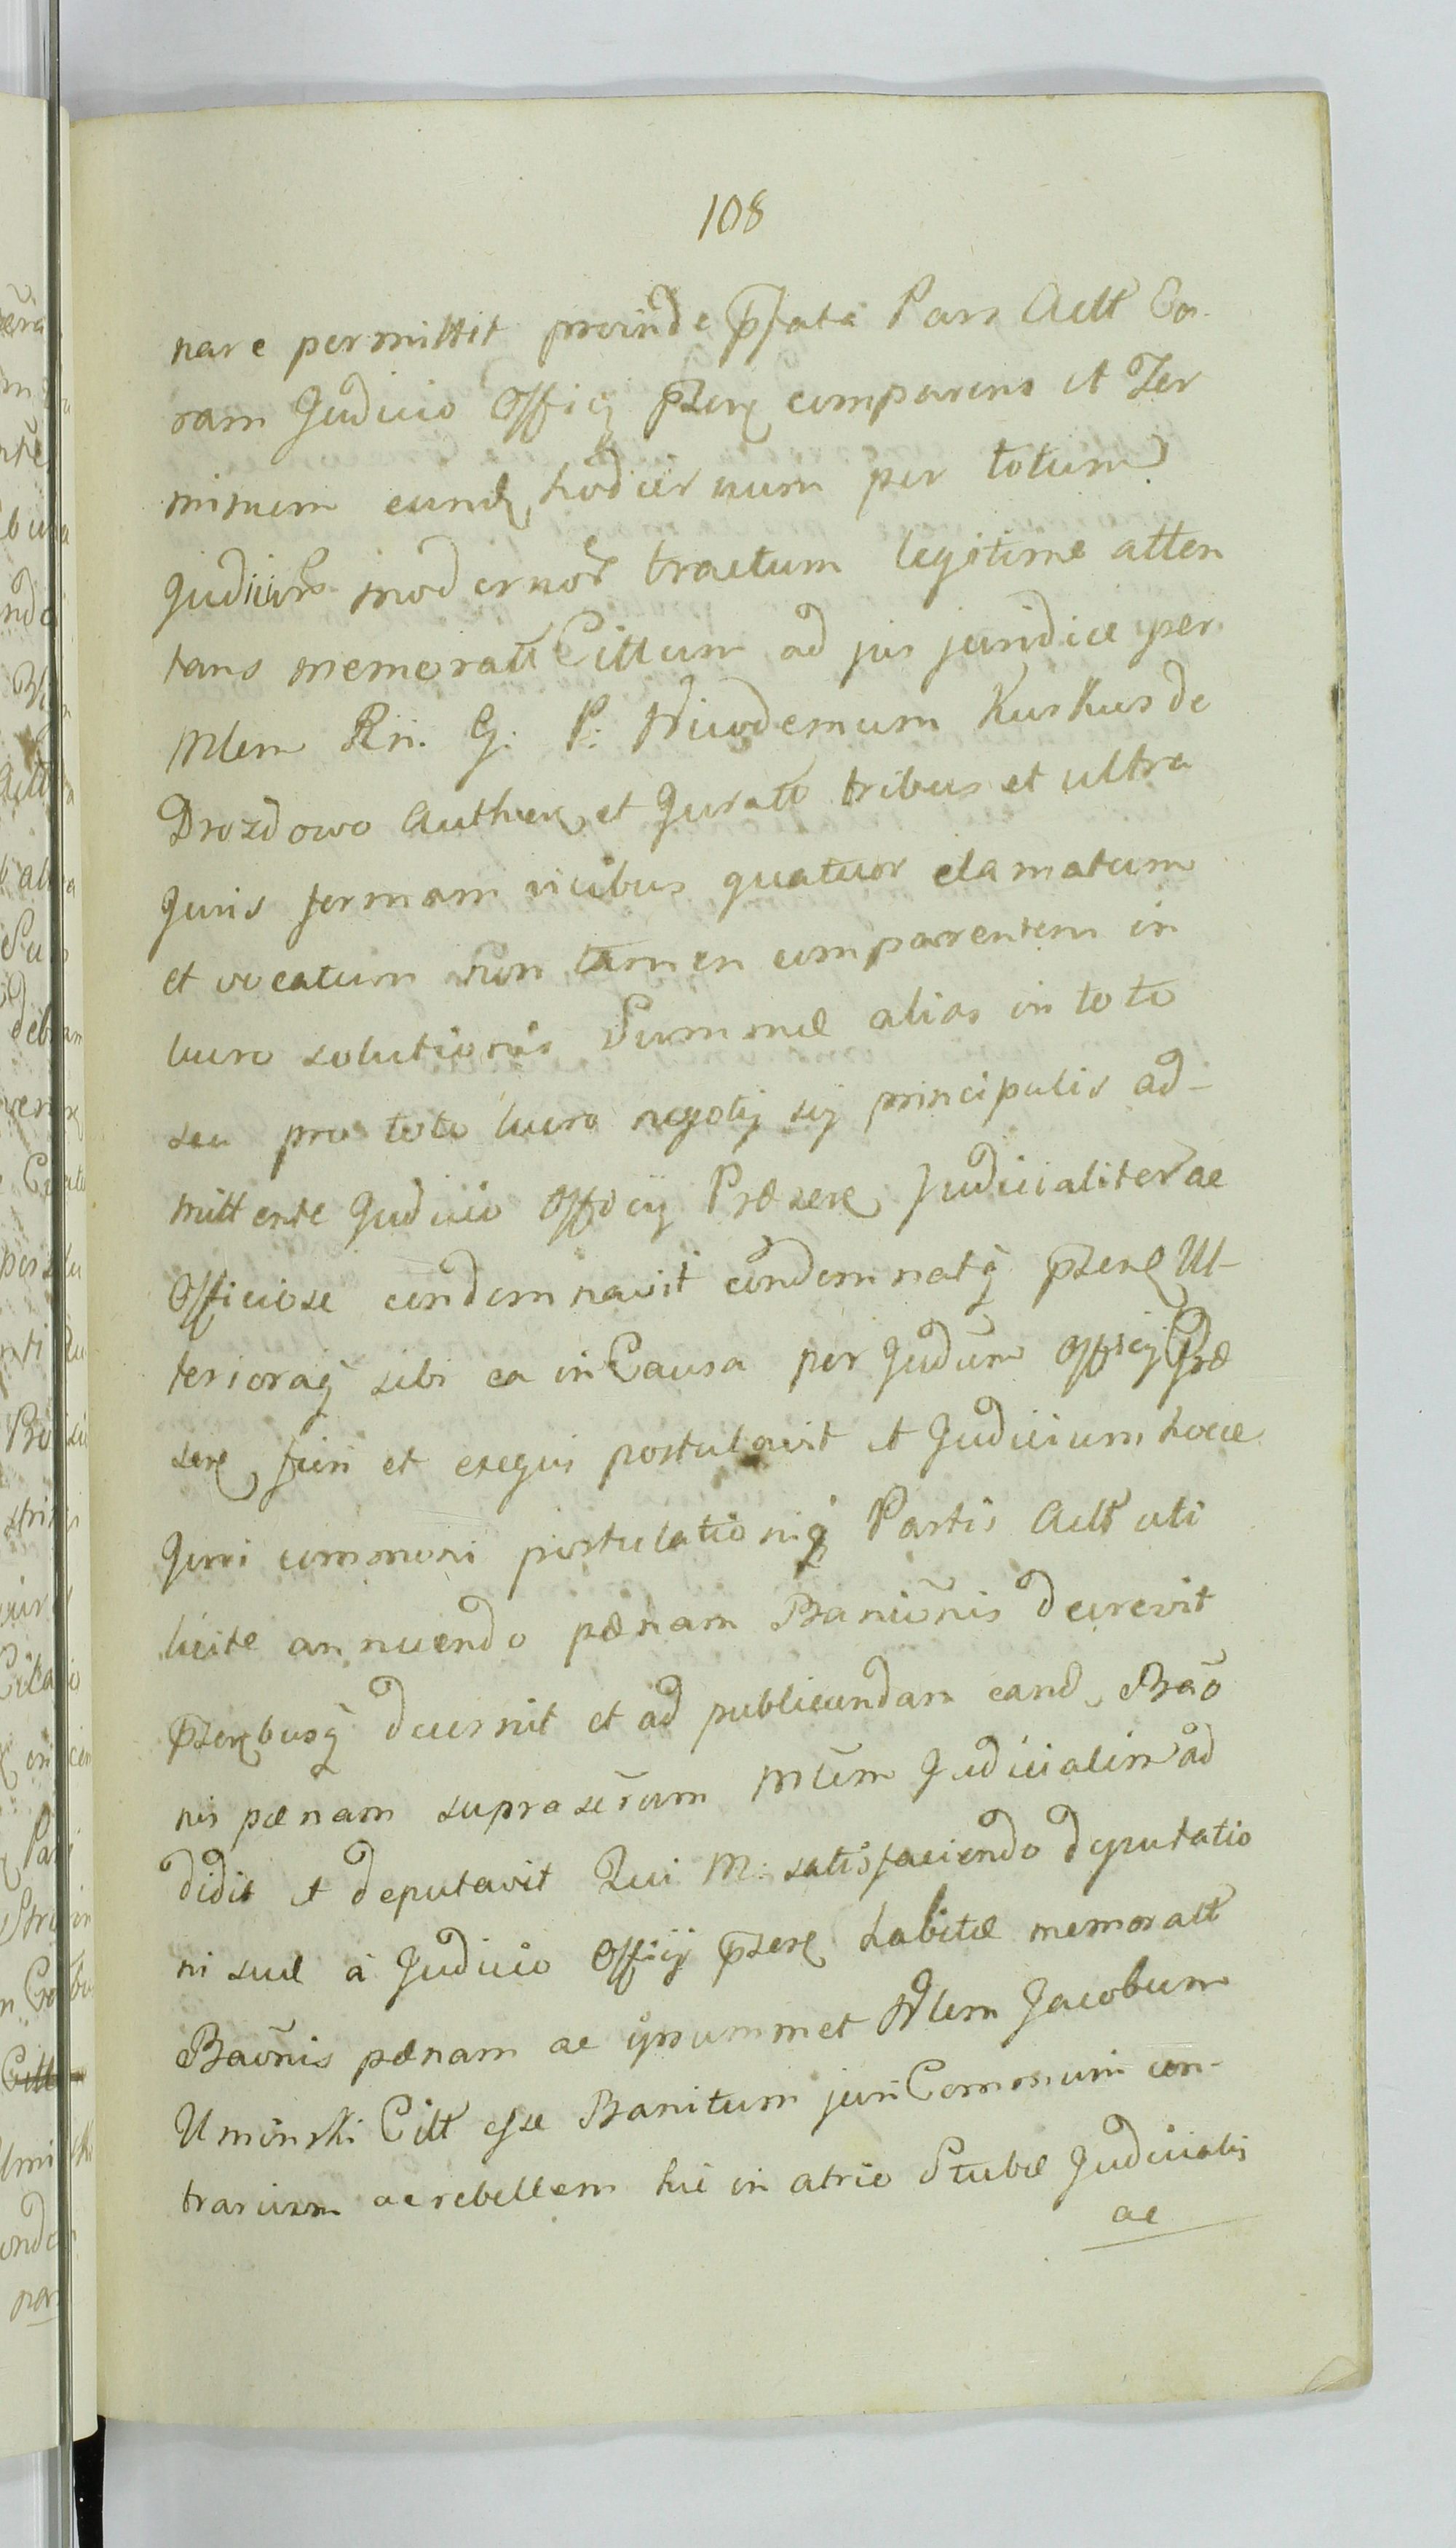 108
nare permittit proinde p̃fata Pars Actt Co-
ram Judicio Officij p̃zerę comparens et Ter
minum eundę hodiernum per totum
Judiciors modernor tractum legitime atten
tans memoratt Cittum ad jus juridice per
Mlem Rñ. G. P. Nicodemum Kuskus de
Drozdowo Authen et Juratt tribus et ultra
Juris formam vicibus quatuor clamatum
et vocatum Non tamen comparentem in
lucro solutionis Summæ alias in toto
seu pro toto lucro negotij sij principalis ad-
mittente Judicio Officij Præzerę Judicialiter ac
Officiose condemnavit condemnatq̃ p̃zerę Ul-
terioraq̃ sibi ea in Causa per Judum Officij Præ
zerę fieri et exequi postulavit et Judicium hocce
Juri communi postulationiq̃ Partis Actt uti
licite annuendo pænam Baniõnis decrevit
p̃zerębusq̃ decernit et ad publicandam eandę Bão
nis pænam suprasẽrum Mlẽm Judicialem ad
didit et deputavit Qui M: satisfaciendo deputatio
ni suæ à Judicio Officij p̃zerę habitæ memoratt
Baõnis pænam ac ipsummet Nlem Jacobum
Uminski Citt esse Banitum juri Communi con-
trarium ac rebellem hic in atrio Stubæ Judicialis
ac